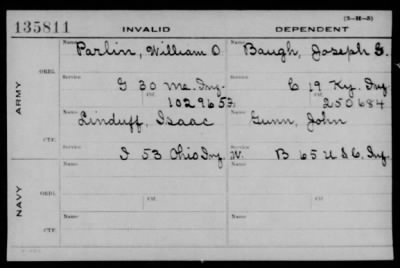 (3-H-5)
135811 INVALID DEPENDENT
Name Parlin, William O. Name Baugh, Joseph G.
ORIG.
Service G 30 Me. Inf. Service C 19 Ky. Inf.
ARMY
Ctf. 1029653 Ctf. 250684
Name Linduff, Isaac Name Gunn, John
CTF.
Service I 53 Ohio Inf. W. Service B 65 U S C. Inf.
Name Name
ORIG.
Service Ctf. Service Ctf.
NAVY
Name Name
CTF.
Service Service